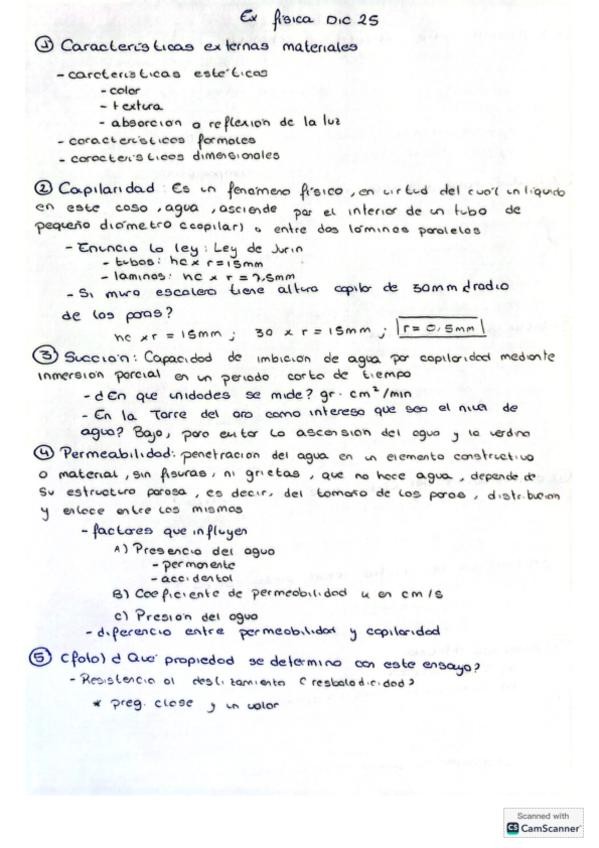 Ex física DIC 25
① Características externas materiales
- carcteristicas estéticas
- color
- textura
- absorcion o reflexion de la luz
- caracteristicas formales
- caracteristicas dimensionales
② Capilaridad: Es un fenomeno físico, en virtud del cual un liquido
en este caso, agua, asciende por el interior de un tubo de
pequeño diámetro (capilar) o entre dos láminas paralelas
- Enuncia la ley: Ley de Jurin
- tubos: hc x r = 15mm
- laminas: hc x r = 7,5mm
- Si muro escalera tiene altura capilar de 30mm d radio
de los poros?
hc x r = 15mm ; 30 x r = 15mm ; r = 0,5mm
③ Succion: Capacidad de imbicion de agua por capilaridad mediante
inmersion parcial en un periodo corto de tiempo
- ¿En que unidades se mide? gr. cm²/min
- En la Torre del oro como interesa que sea el nivel de
agua? Bajo, para evitar la ascension del agua y la verdina
④ Permeabilidad: penetracion del agua en un elemento constructivo
o material, sin fisuras, ni grietas, que no hace agua, depende de
su estructura porosa, es decir, del tamaño de los poros, distribucion
y enlace entre los mismos
- factores que influyen
A) Presencia del agua
- permanente
- accidental
B) Coeficiente de permeabilidad u en cm/s
C) Presion del agua
- diferencia entre permeabilidad y capilaridad
⑤ (foto) ¿Que propiedad se determina con este ensayo?
- Resistencia al deslizamiento (resbaladicidad)
* preg. clase y un valor
Scanned with
CS CamScanner